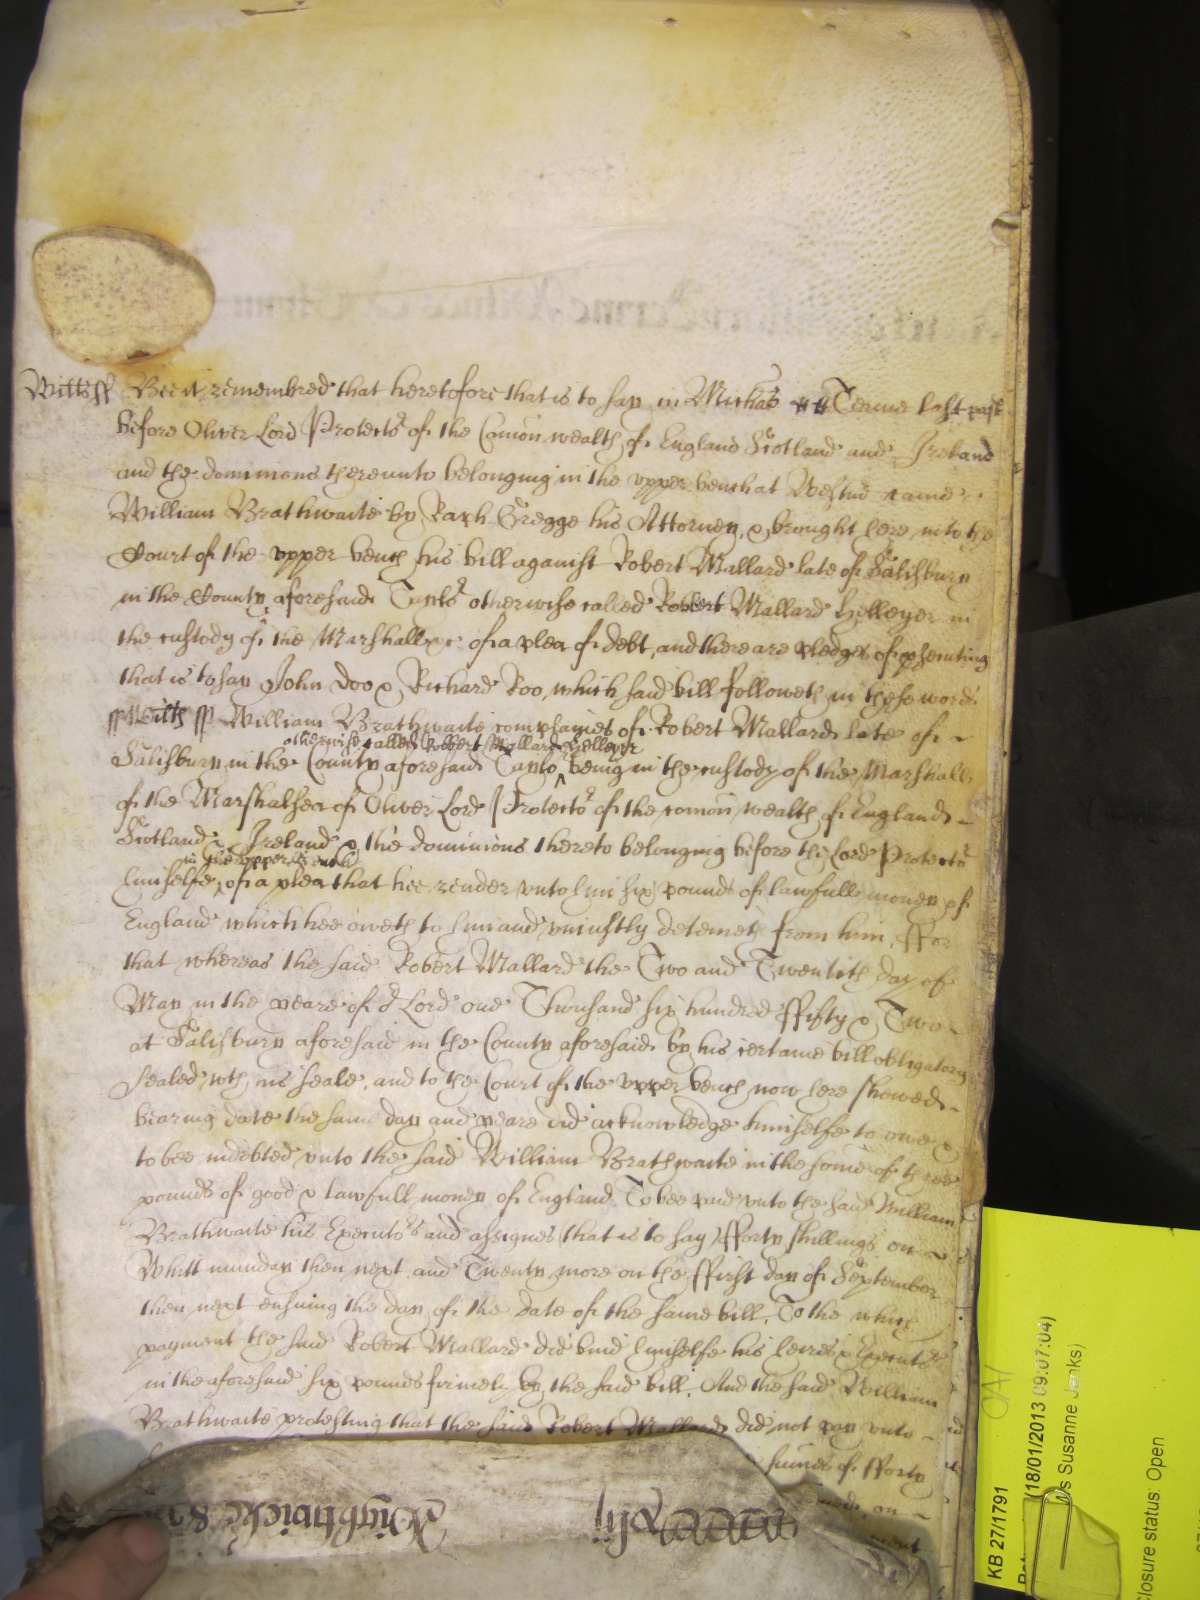 Wiltss Bee it remembred that heretofore that is to say in Michās Terme last past
before Oliver Lord Protector of the Comon wealth of England Scotland and Ireland
and the dominions thereunto belonging in the upper bench at Westm̄ came
William Brathwaite by Raph Gregge his Attorney, & brought here into the
Court of the upper bench his bill against Robert Mallard late of Salisbury
in the County aforesaid otherwise called Robert Mallard Hellyer in
the custody of the Marshall &c of a plea of debt, and there are pledges of prosecuting
that is to say John Doo & Richard Roo, which said bill followeth in these words
ss Wilts ss William Brathwaite complaines of Robert Mallard late of
otherwise called Robert Mallard Hellyer
Salisbury in the County aforesaid being in the custody of the Marshall
of the Marshalsea of Oliver Lord Protector of the comon wealth of England
Scotland & Ireland & the dominions thereto belonging before the Lord Protector
in the upper bench
himselfe, of a plea that hee render unto him six pounds of lawfull money of
England which hee oweth to him and uniustly deteineth from him, ffor
that whereas the said Robert Mallard the Two and Twentith day of
May in the yeare of oʳ Lord one Thousand six hundred ffifty & Two
at Salisbury aforesaid in the County aforesaid by his certaine bill obligatory
sealed wth his seale, and to the Court of the upper bench now here shewed
bearing date the same day and yeare did acknowledge himselfe to owe &
to bee indebted unto the said William Brathwaite in the some of three
pounds of good & lawfull money of England To bee paid unto the said William
Brathwaite his Executors and assignes (that is to say) fforty shillings on
Whitt munday then next and Twenty more on the ffirst day of September
then next ensuing the day of the date of the same bill, To the which
payment the said Robert Mallard did bind himselfe his heires & Executors
in the aforesaid six pounds firmely by the said bill, And the said William
Brathwaite protesting that the said Robert Mallard did not pay unto
sumes of fforty
on
Knightbridge &
KB 27/1791
(18/01/2013 09:07:04)
s Susanne Jenks)
losure status: Open